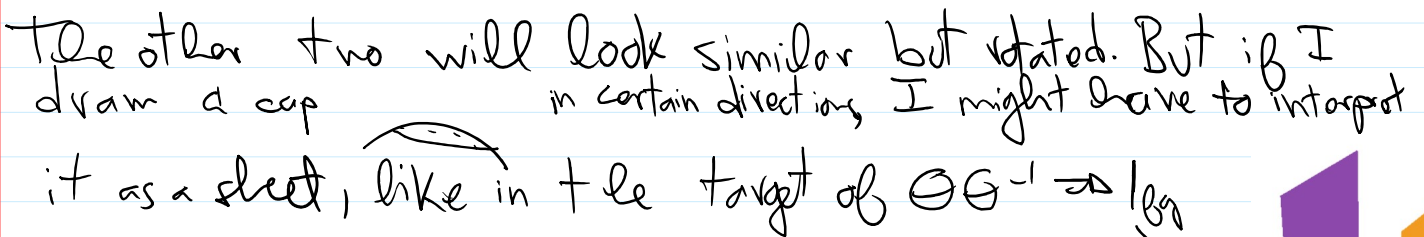 The other two will look similar but rotated. But if I
draw a cap in certain directions, I might have to interpret
it as a sheet, like in the target of ΘΘ⁻¹ ⇒ 1